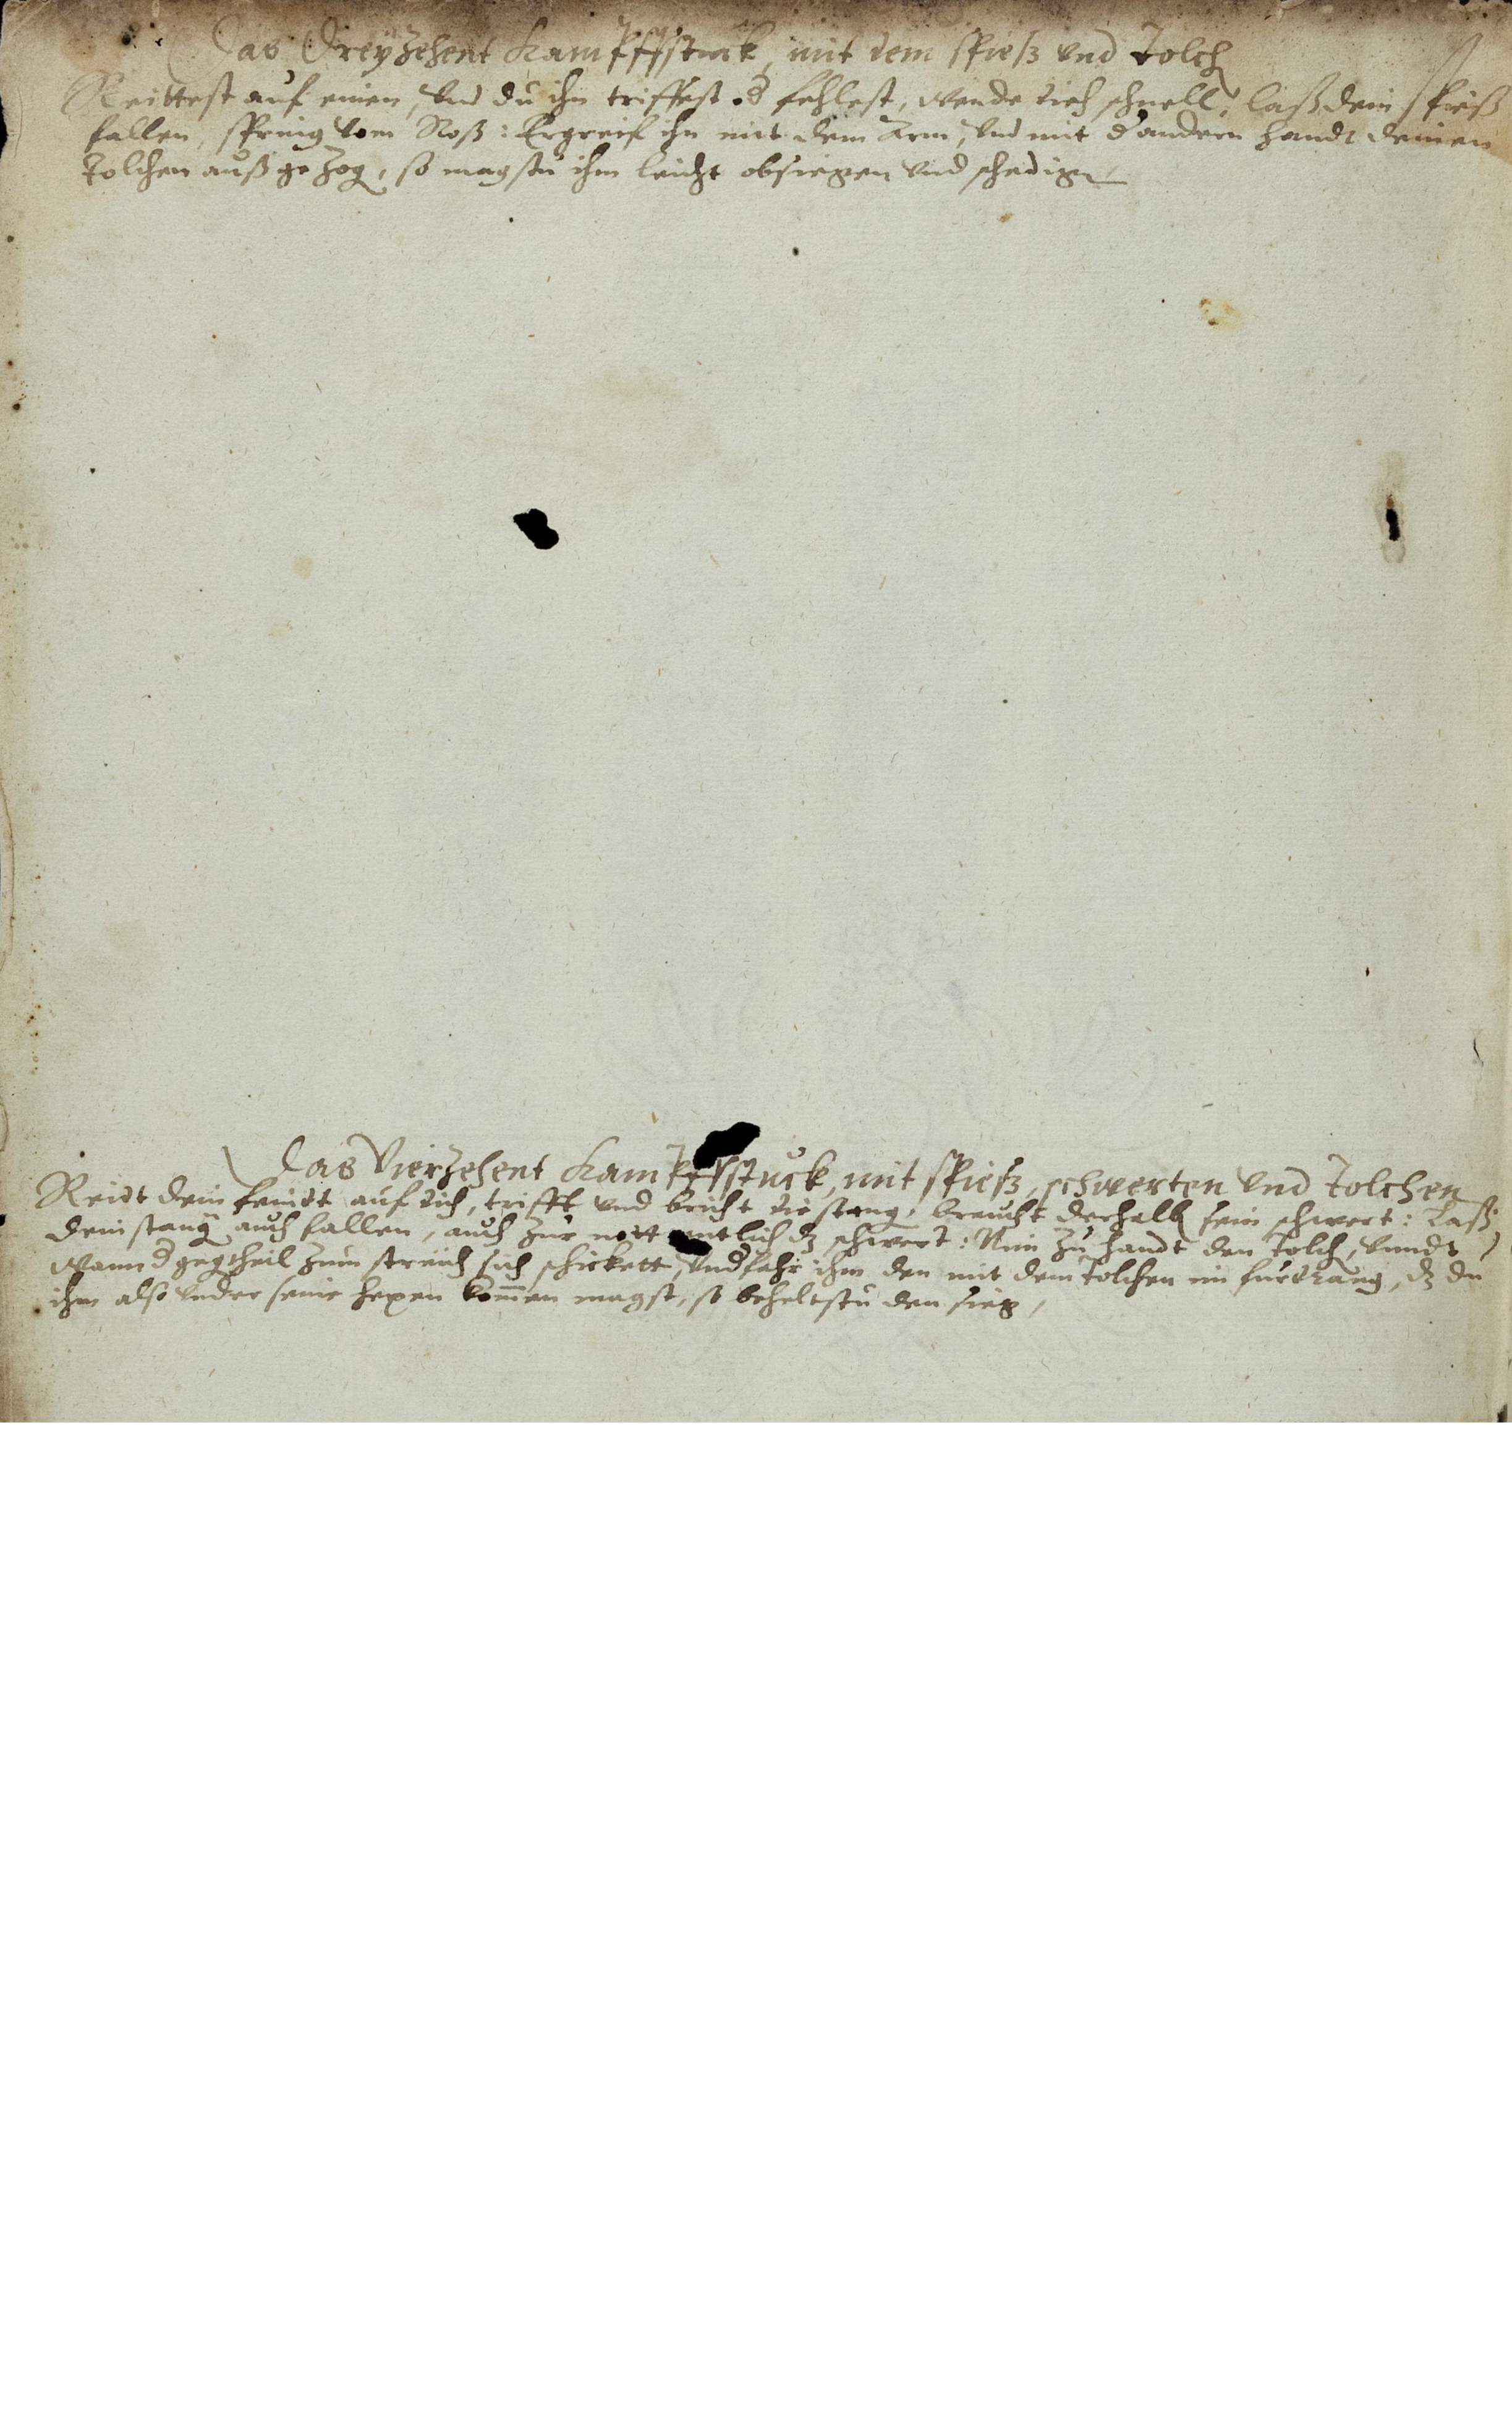 Das Dreÿzehent Kampffstuck, mit dem spieß vnd Tolch
Reittest auf einen, vnd du ihn triffest od fehlest, wende dich schnell, laß dein spieß
fallen, spring vom Roß: Ergreif ihn mit dem Arm, vnd mit d andern handt deinen
Tolchen außgezog, so magstu ihm leicht obsiegen vnd schedigen
Das Vierzehent Kampffstuck, mit spieß, schwerten vnd Tolchen
Reidt dein feindt auf dich, trifft vnd bricht die stang, braucht derhalb sein schwert: Laß
dein stang auch fallen, auch zur nott dz schwert: Nim zu handt den Tolch, vnndt
wann d gegtheil zum streich sich schickett, vnd fahr ihm den mit dem Tolchen im fürdrang, dz du
ihm also vnder seine kommen magst, so beheltstu den sieg,